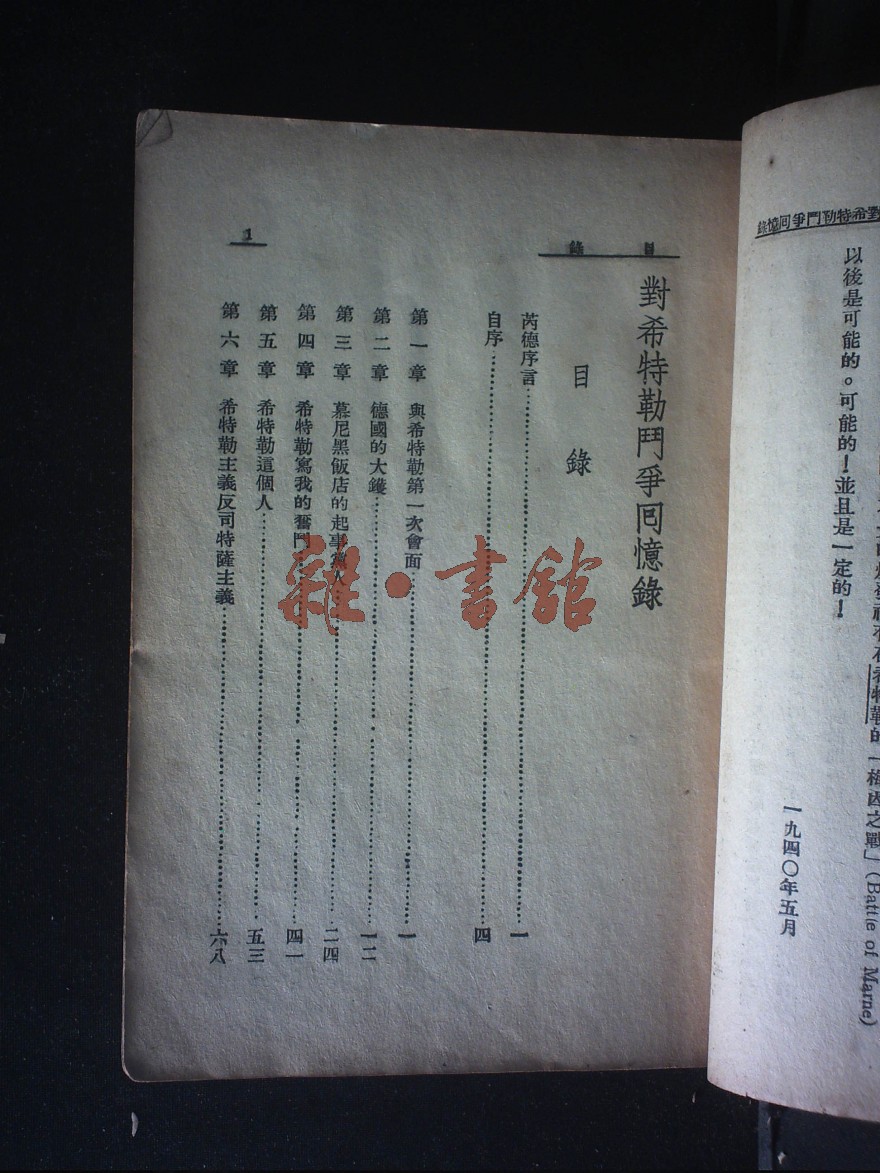 對希特勒鬥爭回憶錄
以後是可能的。可能的！並且是一定的！
一九四〇年五月
希特勒的「梅因之戰」(Battle of Marne)
目錄
對希特勒鬥爭回憶錄
目錄
芮德序言……一
自序……四
第一章 與希特勒第一次會面……一
第二章 德國的大鑊……一二
第三章 慕尼黑飯店的起事黨人……二四
第四章 希特勒寫我的奮鬥……四一
第五章 希特勒這個人……五三
第六章 希特勒主義反司特薩主義……六八
1
雜·書館